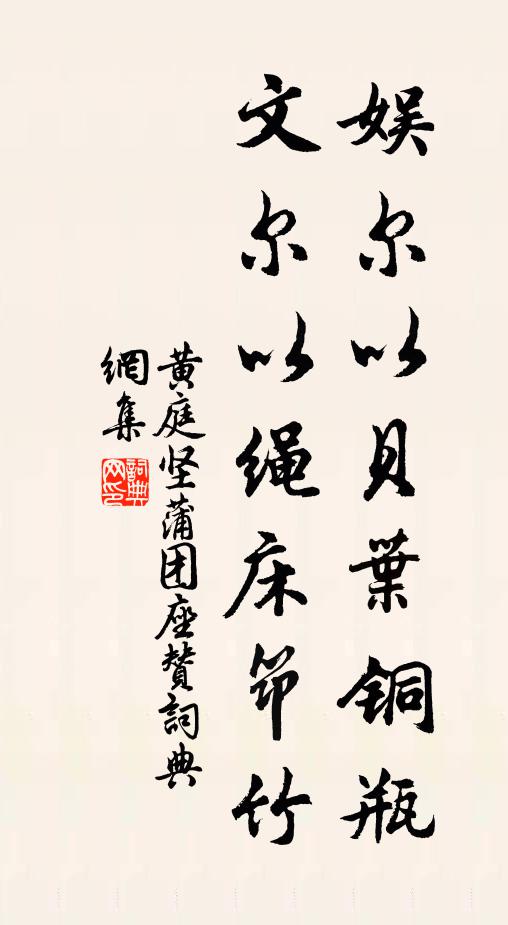 娱尔以贝葉铜瓶
文尔以绳床笻竹
黄庭坚蒲团座赞詞典
網集
詞典
网印